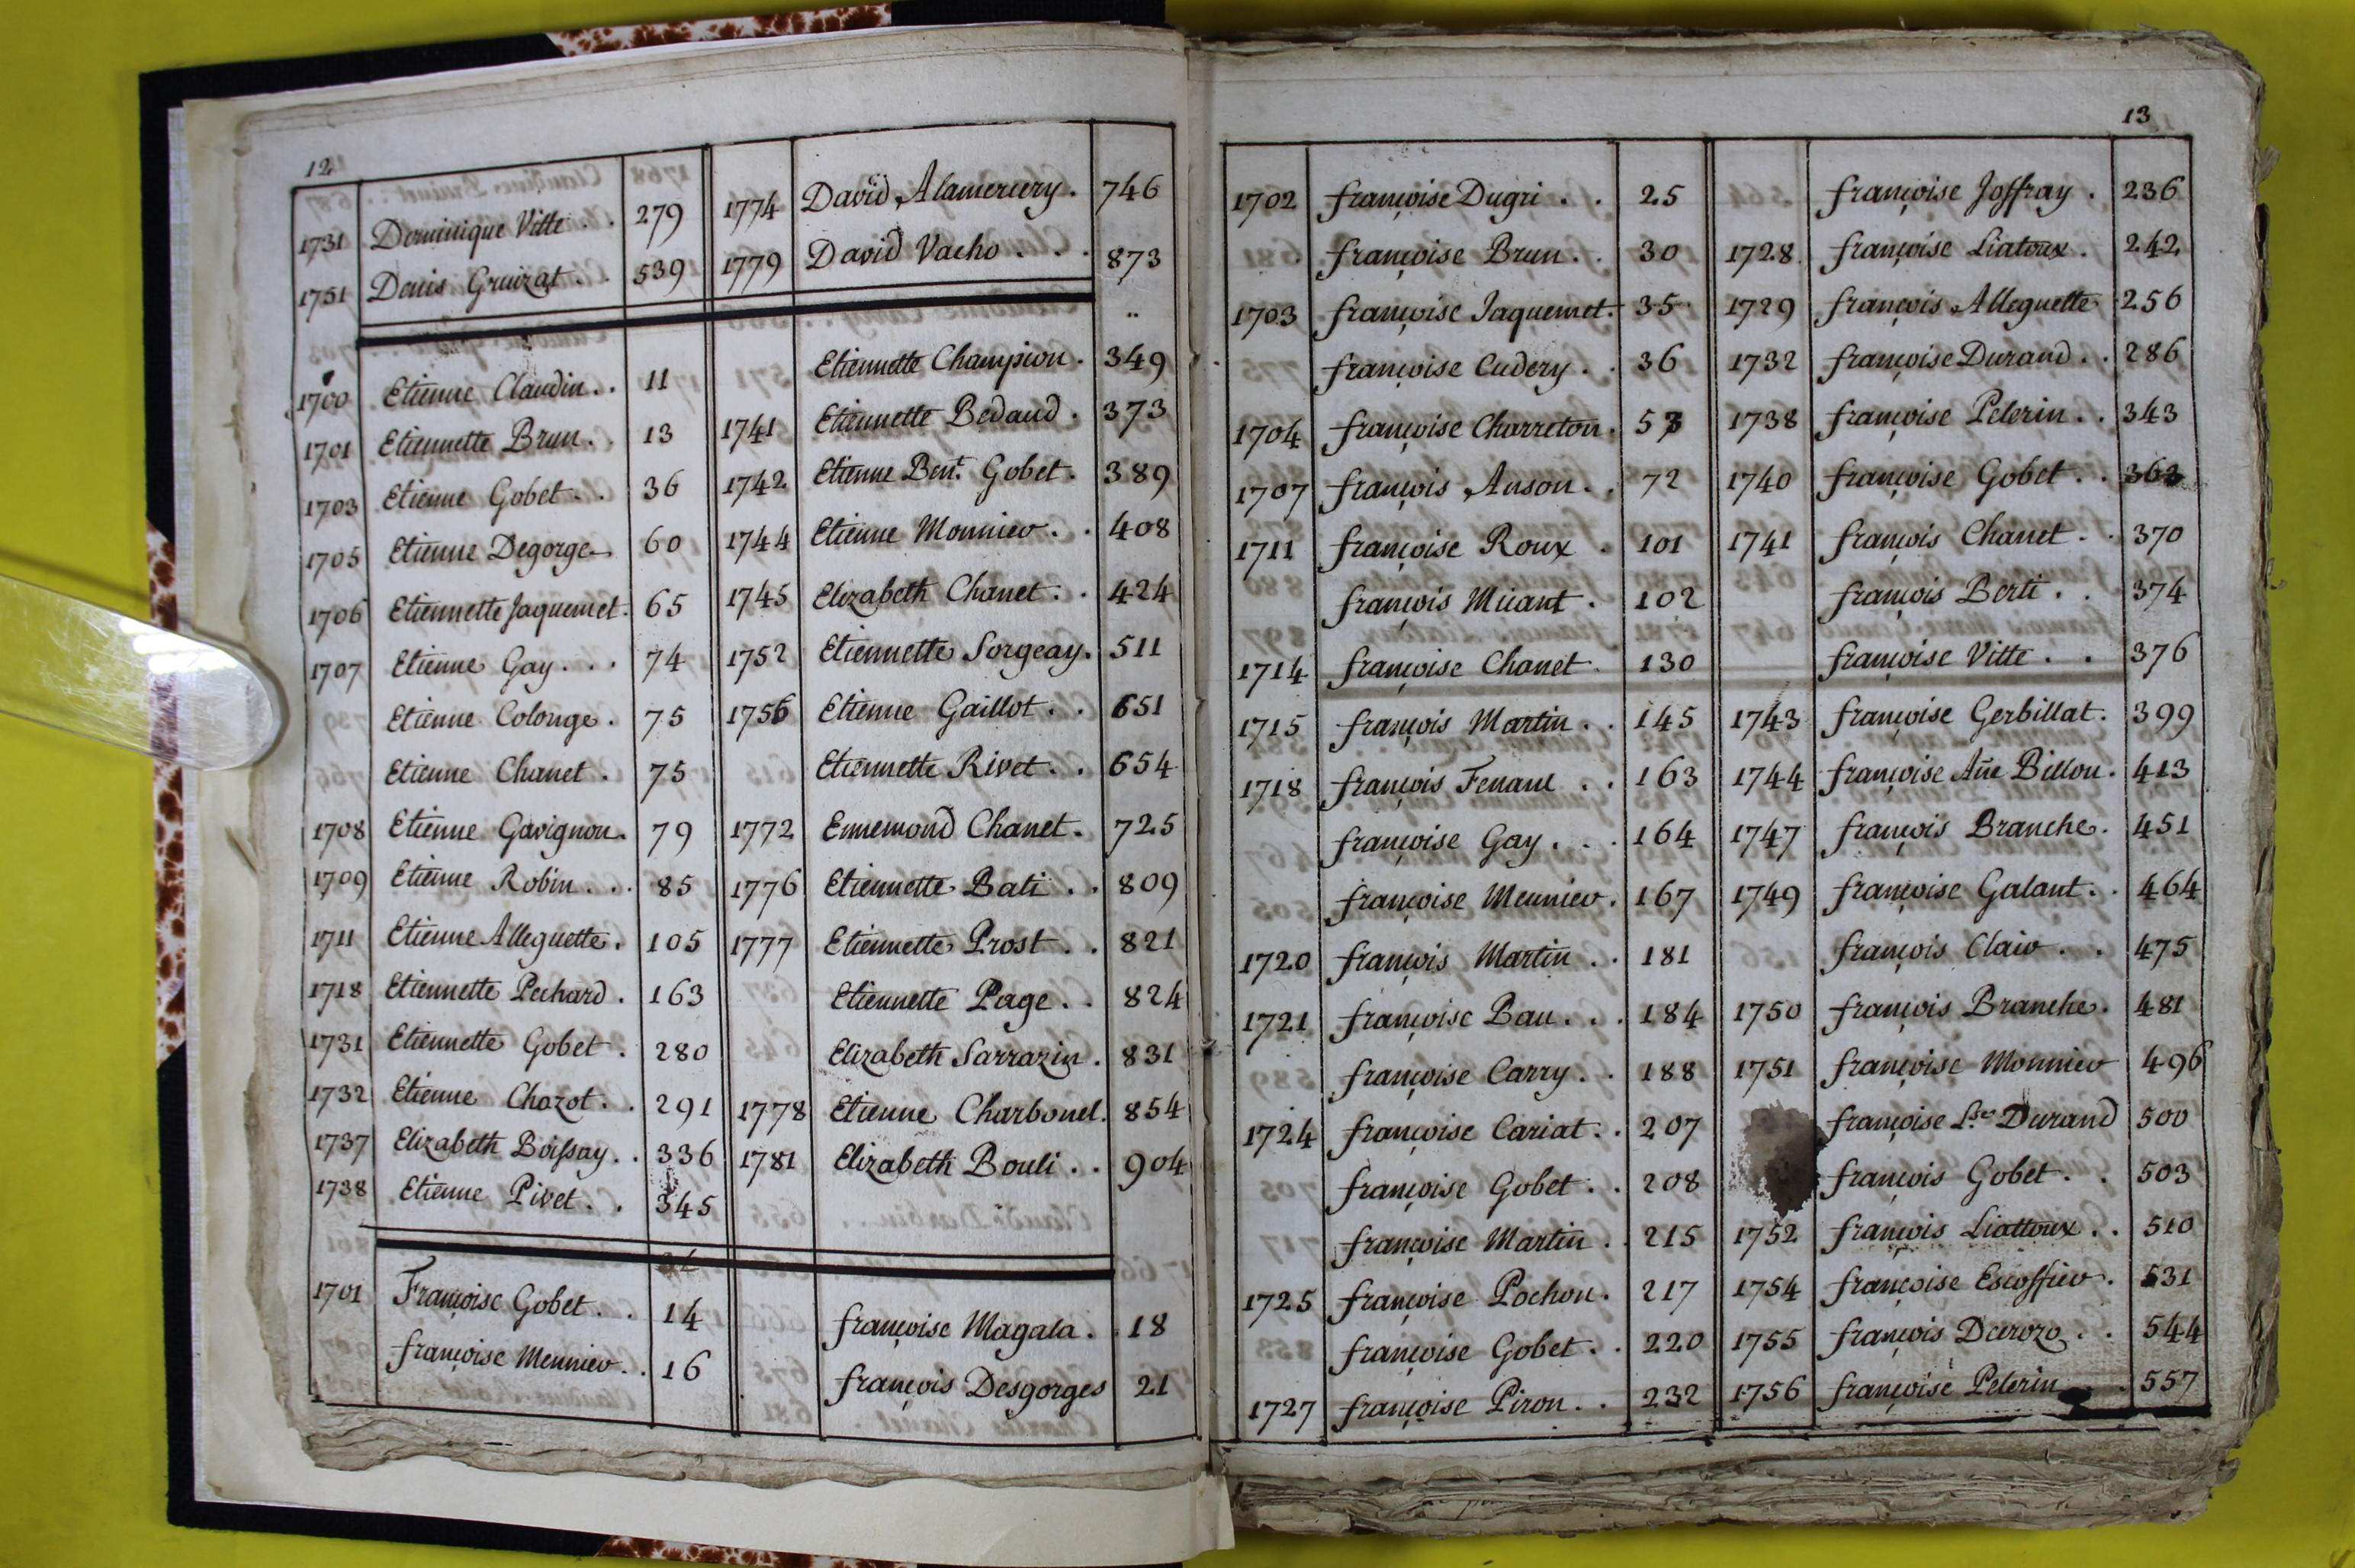 12
1731 Dominique Vitte . . 279
1751 Denis Gruizat . . 539
1700 Etienne Claudin . . 11
1701 Etiennette Brun . . 13
1703 Etienne Gobet . . 36
1705 Etienne Degorge 60
1706 Etiennette Jaquemet . 65
1707 Etienne Gay . . . 74
Etienne Colonge . 75
Etienne Chanet . 75
1708 Etienne Gavignon . 79
1709 Etienne Robin . . . 85
1711 Etienne Alleguette . 105
1718 Etiennette Pechard . 163
1731 Etiennette Gobet . 280
1732 Etienne Chazot . . 291
1737 Elizabeth Boissay . . 336
1738 Etienne Pivet . . 345
1701 Françoise Gobet . . 14
françoise Meunier . . 16
1774 David Alamercery . 746
1779 David Vacho . . . 873
Etiennette Champion . 349
1741 Etiennette Bedaud . 373
1742 Etienne Bent. Gobet . 389
1744 Etienne Monnier . . 408
1745 Elizabeth Chanet . . 424
1752 Etiennette Sorgeay . 511
1756 Etienne Gaillot . . 651
Etiennette Rivet . . 654
1772 Ennemond Chanet . 725
1776 Etiennette Bati . . 809
1777 Etiennette Prost . . 821
Etiennette Page . . 824
Elizabeth Sarrazin . 831
1778 Etienne Charbonel . 854
1781 Elizabeth Bouli . . 904
françoise Magala . 18
françois Desgorges 21
13
1702 françoise Dugri . . 25
françoise Brun . . 30
1703 françoise Jaquemet . 35
françoise Cudery . . 36
1704 françoise Charreton . 53
1707 françois Anson . . 72
1711 françoise Roux . 101
françois Micant . 102
1714 françoise Chanet . 130
1715 françois Martin . . 145
1718 françois Fenant . . 163
françoise Gay . . . 164
françoise Meunier . 167
1720 françois Martin . . 181
1721 françoise Bau . . . 184
françoise Carry . . 188
1724 françoise Cariat . . 207
françoise Gobet . . 208
françoise Martin . . 215
1725 françoise Pochon . 217
françoise Gobet . . 220
1727 françoise Piron . . 232
françoise Joffray . 236
1728 françoise Liatoux . 242
1729 françois Alleguette 256
1732 françoise Durand . . 286
1738 françoise Pelerin . . 343
1740 françoise Gobet . .
1741 françois Chanet . . 370
françois Berti . . 374
françoise Vitte . . 376
1743 françoise Gerbillat . 399
1744 françoise Añe Billon . 413
1747 françois Branche . 451
1749 françoise Galant . . 464
françois Clair . . 475
1750 françois Branche . 481
1751 françoise Monnier 496
françoise Durand 500
françois Gobet . . 503
1752 françois Liattoux . . 510
1754 françoise Escoffier . 531
1755 françois Decrozo . . 544
1756 françoise Pelerin . . 557